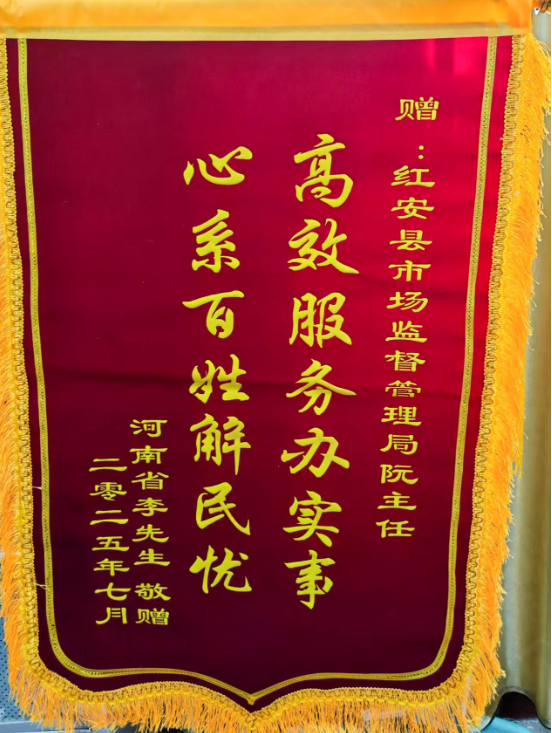 赠：红安县市场监督管理局阮主任
高效服务办实事
心系百姓解民忧
河南省李先生 敬赠
二零二五年七月